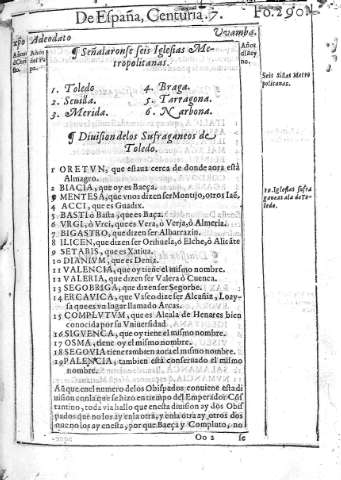 De España, Centuria. 7.
Adeodato
Vvamba.
¶ Señalaronse seis Iglesias Me-
tropolitanas.
1. Toledo 4. Braga.
2. Seuilla. 5. Tarragona.
3. Merida. 6. Narbona.
¶ Diuision de los Sufraganeos de
Toledo.
1 ORETVN, que estaua cerca de donde aora está
Almagro.
2 BIACIA, que oy es Baeça.
3 MENTESA, que vnos dizen ser Montijo, otros Iaē.
4 ACCI, que es Guadix.
5 BASTI ó Basta, que es Baça.
6 VRGI, ó Vrci, que es Vera, ó Verja, ó Almeria.
7 BIGASTRO, que dizen ser Albarrazin.
8 ILICEN, que dizen ser Orihuela, ó Elche, ó Alicāte
9 SETABIS, que es Xatiua.
10 DIANIVM, que es Denia.
11 VALENCIA, que oy tiene el mismo nombre.
12 VALERIA, que dizen ser Valera ó Cuenca.
13 SEGOBRIGA, que dizen ser Segorbe.
14 ERCAVICA, que Vaseo dize ser Alcañiz, Loay-
sa que es vn lugar llamado Arcas.
15 COMPLVTVM, que es Alcala de Henares bien
conocida por su Vniuersidad.
16 SIGVENCA, que oy tiene el mismo nombre.
17 OSMA, tiene oy el mismo nombre.
18 SEGOVIA tiene tambien aora el mismo nombre.
19 PALENCIA, tambien está conseruado el mismo
nombre.
Aũque en el numero de los Obispados contiene esta di
uision con la que se hizo en tiempo del Emperador Cōs
tantino, todavia hallo que en esta diuision ay dos Obis
pados que no los ay en la otra, y en la otra ay otros dos
que no los ay en esta, por que Baeça y Compluto, no
Oo 2 se
Seis Sillas Metro
politanas.
19. Iglesias sufra
ganeas a la de To-
ledo.